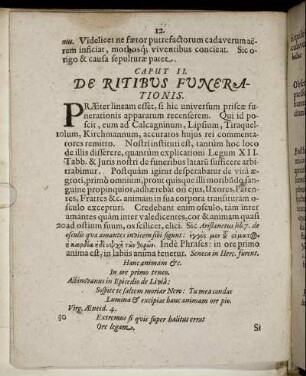 12.
niu. Videlicet ne fœtor putrefactorum cadaverum aë-
rem inficiat, morbosq́; viventibus concieat. Sic o-
rigo & causa sepulturæ patet.
CAPUT II.
DE RITIBUS FUNERA-
TIONIS.
PRÆter lineam esset, si hic universum priscæ fu-
nerationis apparatum recenserem. Qui id po-
scit, eum ad Calcagninum, Lipsium, Tiraquel-
tolum, Kirchmannum, accuratos hujus rei commenta-
tores remitto. Nostri instituti est, tantùm hoc loco
de illis disserere, quantum explicationi Legum XII.
Tabb. & Juris nostri de funeribus laturū sufficere arbi-
trabimur. Postquàm igitur desperabatur de vita æ-
groti, primi omnium, prout quisque illi moribūdo san-
guine propinquior, adhærebāt on ejus, Uxores, Paren-
tes, Fratres &c. animam in sua corpora transituram o-
sculo excepturi. Credebant enim osculo, tam inter
amantes quàm inter valedicentes, cor & animam quasi
20 ad ostium suum, os scilicet, elici. Sic
In ore primo teneo.
Albinovanus in Epicedio de Liviâ:
Sospite te saltem moriar Nero: Tu mea condas
Lumina & excipias hanc animam ore pio.
Virg. Æneid. 4.
30 Extremus si quis super halitus errat
Ore legam.
Si